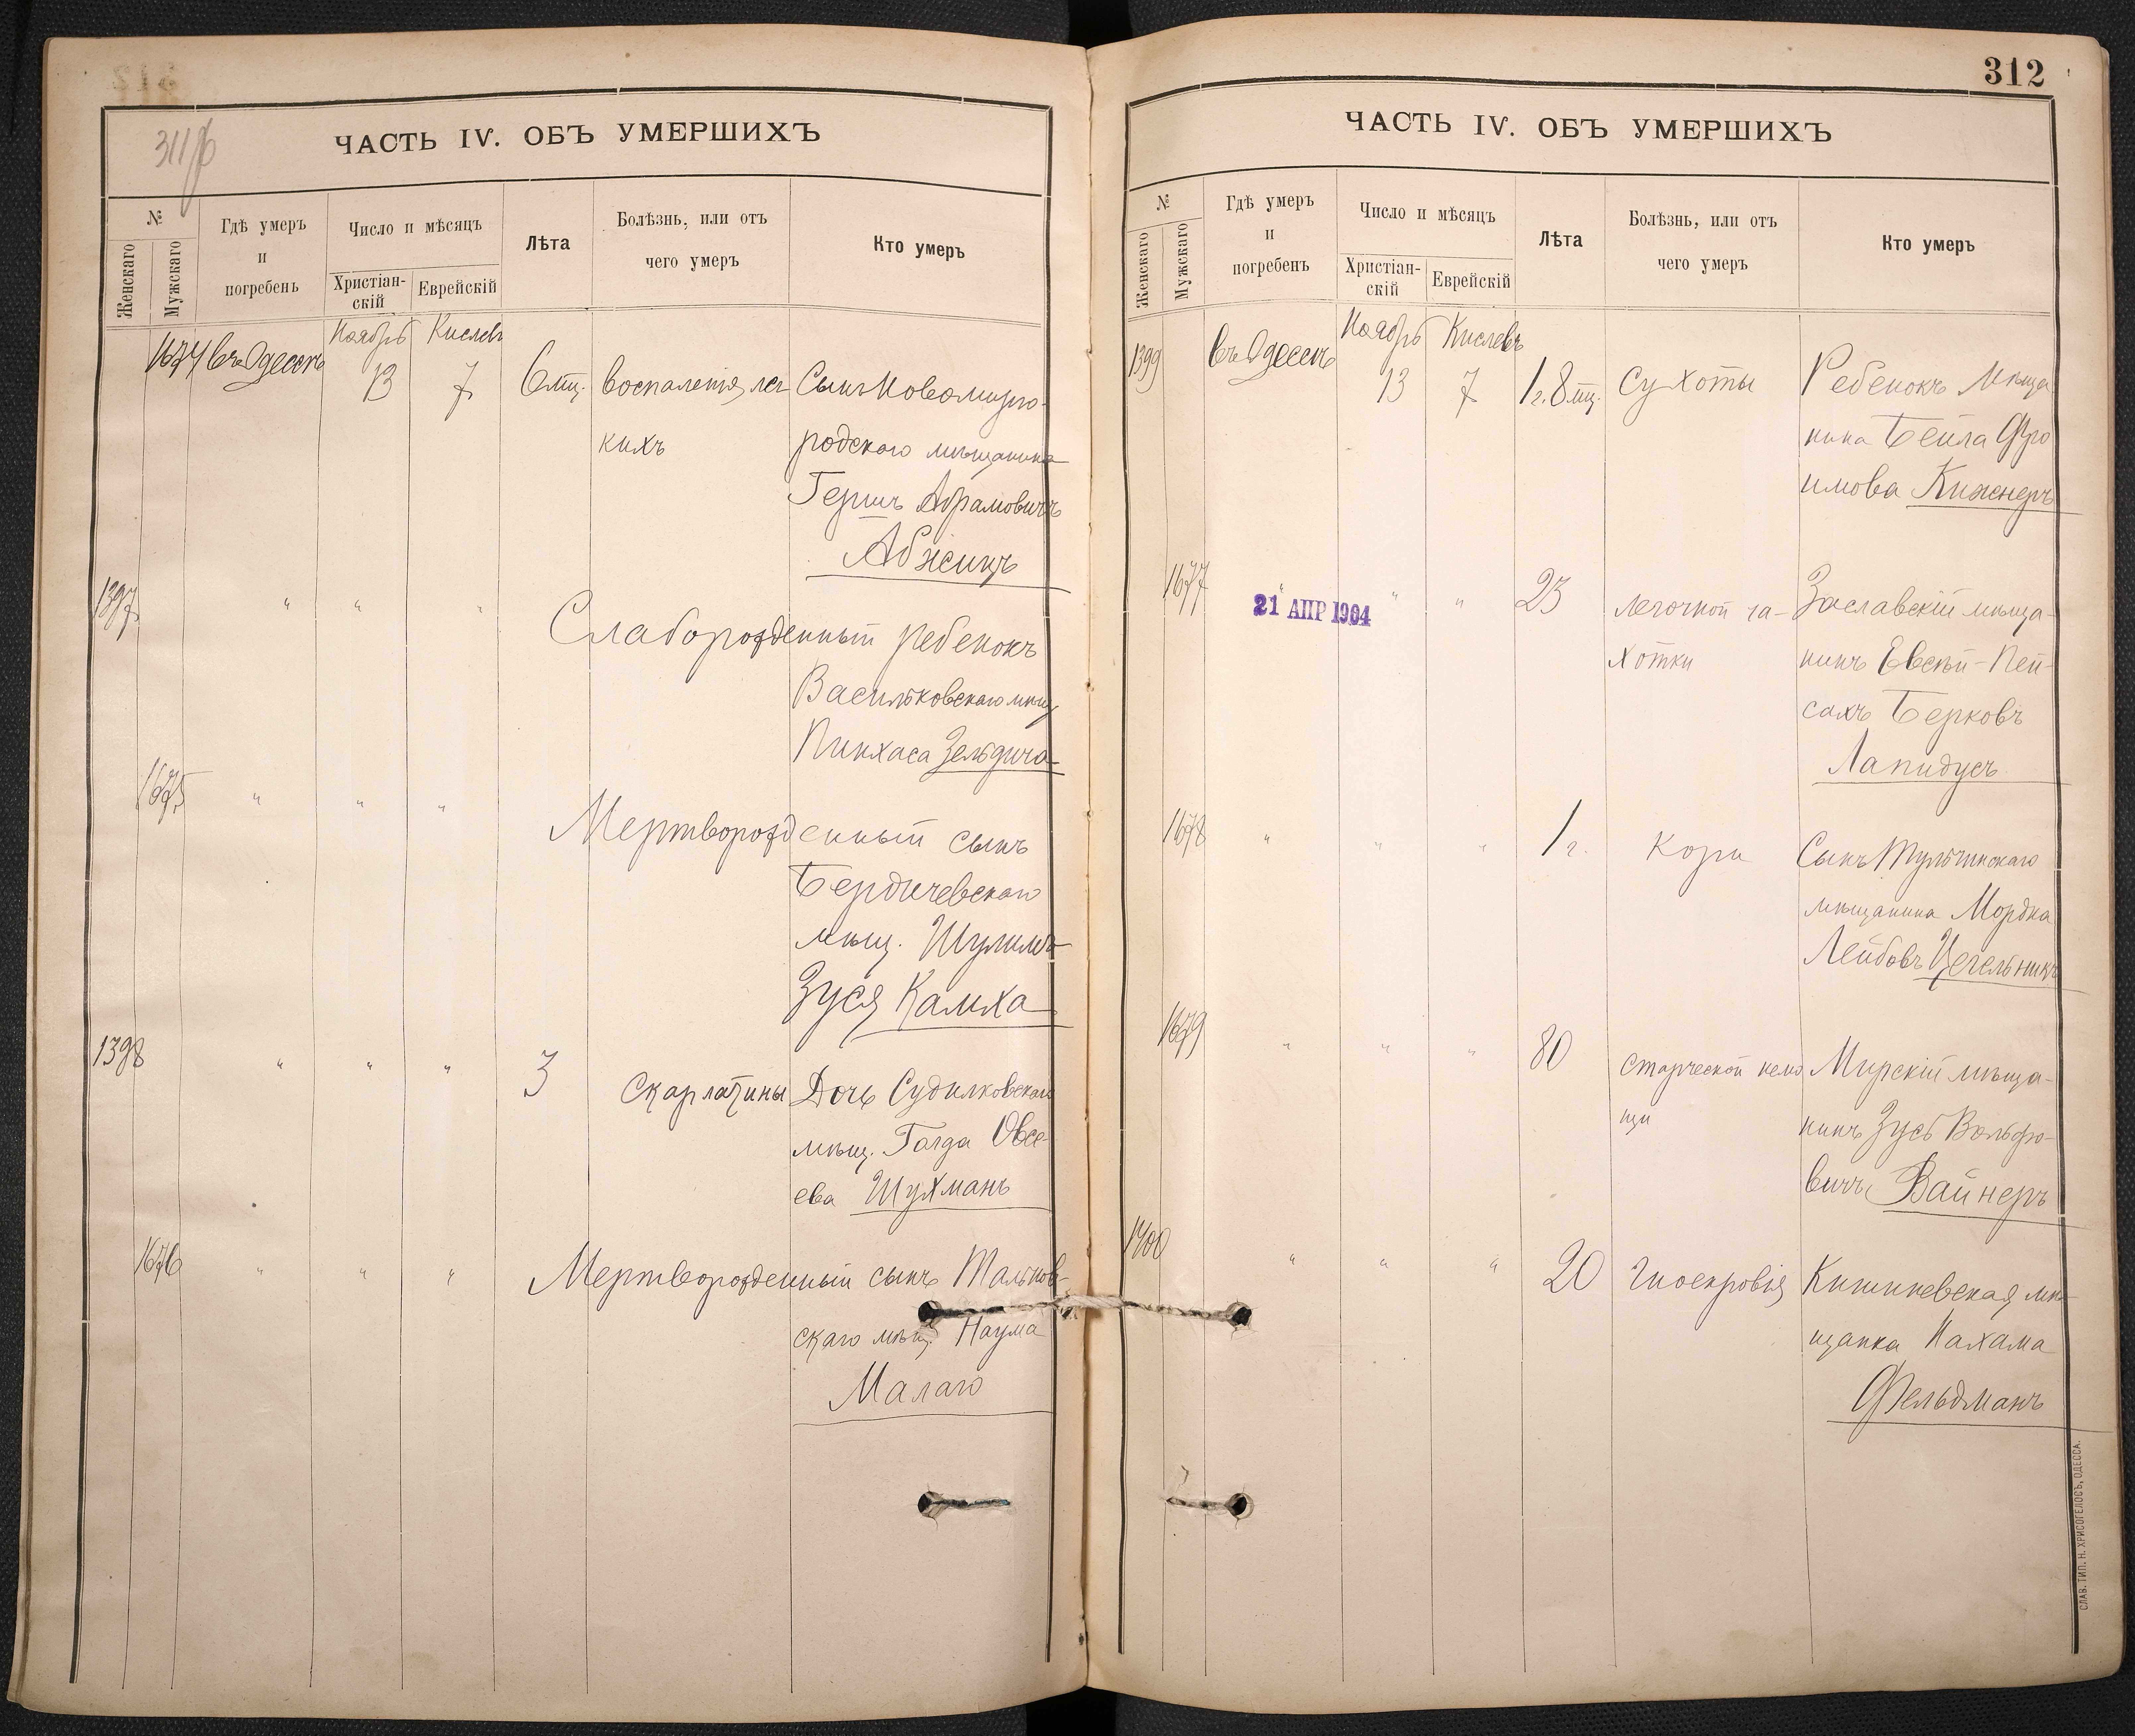 311
ЧАСТЬ IV. ОБЪ УМЕРШИХЪ
№
Женскаго
Мужскаго
Гдѣ умеръ
и
погребенъ
Число и мѣсяцъ
Христіан-
скій
Еврейскій
Лѣта
Болѣзнь, или отъ
чего умеръ
Кто умеръ
Ноябрь Кислевъ
1674 въ Одессѣ 13 7 6 мц. воспаленія лег Сынъ Новомирго-
кихъ родскаго мѣщанина
Гершъ Абрамовичъ
Абжицъ
1397 " " "
Слаборожденный ребенокъ
Васильковскаго мѣщ
Пинхаса Зельдича
1675 " " "
Мертворожденный сынъ
Бердичевскаго
мѣщ. Шулимъ
Зуся Камха
1398 " " " 3 Скарлатины Дочь Судилковскаго
мѣщ. Голда Овсе-
ева Шухманъ
1676 " " " Мертворожденный сынъ Тальнов-
скаго мѣщ. Наума
Малаго
312
ЧАСТЬ IV. ОБЪ УМЕРШИХЪ
№
Женскаго
Мужскаго
Гдѣ умеръ
и
погребенъ
Число и мѣсяцъ
Христіан-
скій
Еврейскій
Лѣта
Болѣзнь, или отъ
чего умеръ
Кто умеръ
Ноябрь Кислевъ
1399 въ Одессѣ 13 7 1 г. 8 мц. Сухоты Ребенокъ Мѣща
нина Бейла Фро
имова Кижнеръ
1677 " " " 23 легочной ча- Заславскій мѣща-
21 АПР 1904
хотки нинъ Евсѣй-Пей-
сахъ Берковъ
Лапидусъ
1678 " " " 1 г. Кори Сынъ Тульчинскаго
мѣщанина Мордка
Лейбовъ Цегельникъ
1679 " " " 80 старческой немо Мирскій мѣща-
щи нинъ Зусь Вольфо-
вичъ Вайнеръ
1400 " " " 20 Гноекровія Кишиневская мѣ-
щанка Нахама
Фельдманъ
СЛАВ. ТИП. Н. ХРИСОГЕЛОСЪ, ОДЕССА.